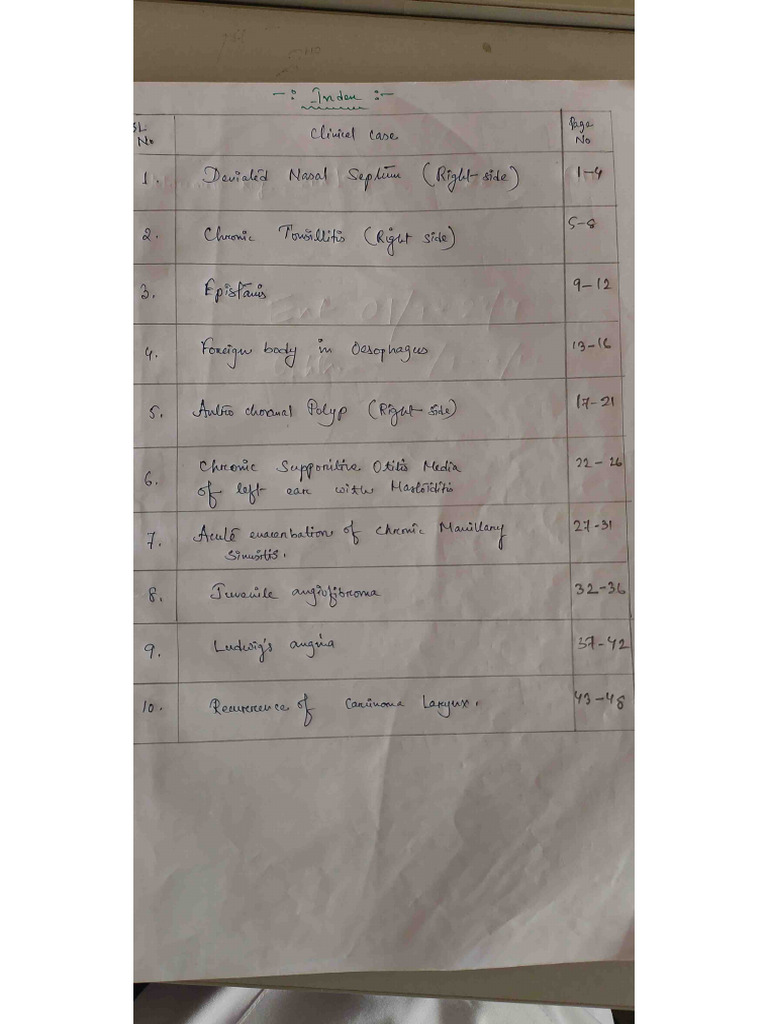 -: Index :-
SL No Clinical case Page No
1. Deviated Nasal Septum (Right-side) 1-4
2. Chronic Tonsillitis (Right side) 5-8
3. Epistaxis 9-12
4. Foreign body in Oesophagus 13-16
5. Antro choanal Polyp (Right-side) 17-21
6. Chronic Supporitive Otitis Media 22-26
of left ear with Mastoiditis
7. Acute exacerbation of chronic Maxillary 27-31
Sinusitis.
8. Juvenile angiofibroma 32-36
9. Ludwig's angina 37-42
10. Recurrence of Carcinoma Larynx. 43-48